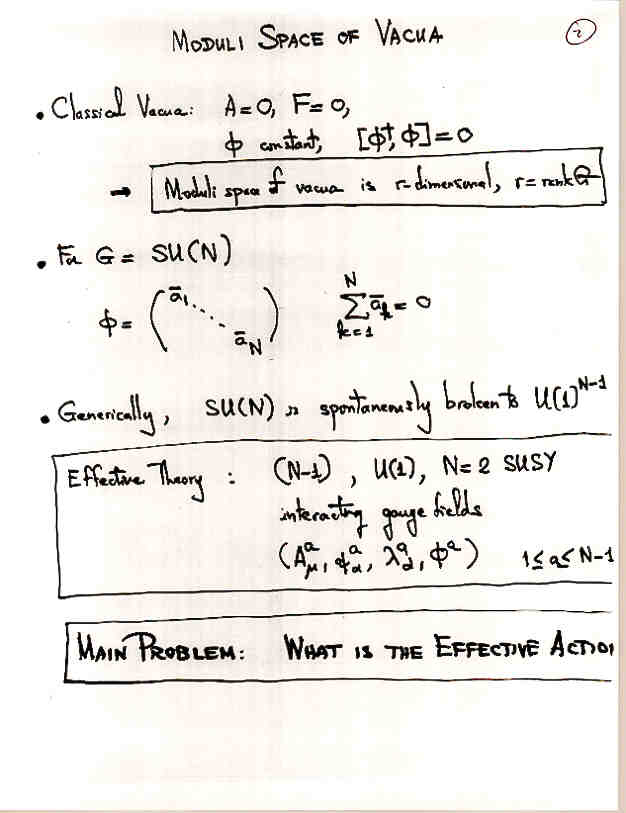 MODULI SPACE OF VACUA
2
• Classical Vacua: A=0, F=0,
ϕ constant, [ϕ†, ϕ]=0
→ Moduli space of vacua is r-dimensional, r = rank G
• For G = SU(N)
ϕ = ( ā₁ ⋱ ā_N ) ∑_{k=1}^{N} ā_k = 0
• Generically, SU(N) is spontaneously broken to U(1)^{N-1}
Effective Theory : (N-1) , U(1), N=2 SUSY
interacting gauge fields
(A_μ^a, ψ_α^a, λ_α^a, ϕ^a) 1≤a≤N-1
MAIN PROBLEM: WHAT IS THE EFFECTIVE ACTION